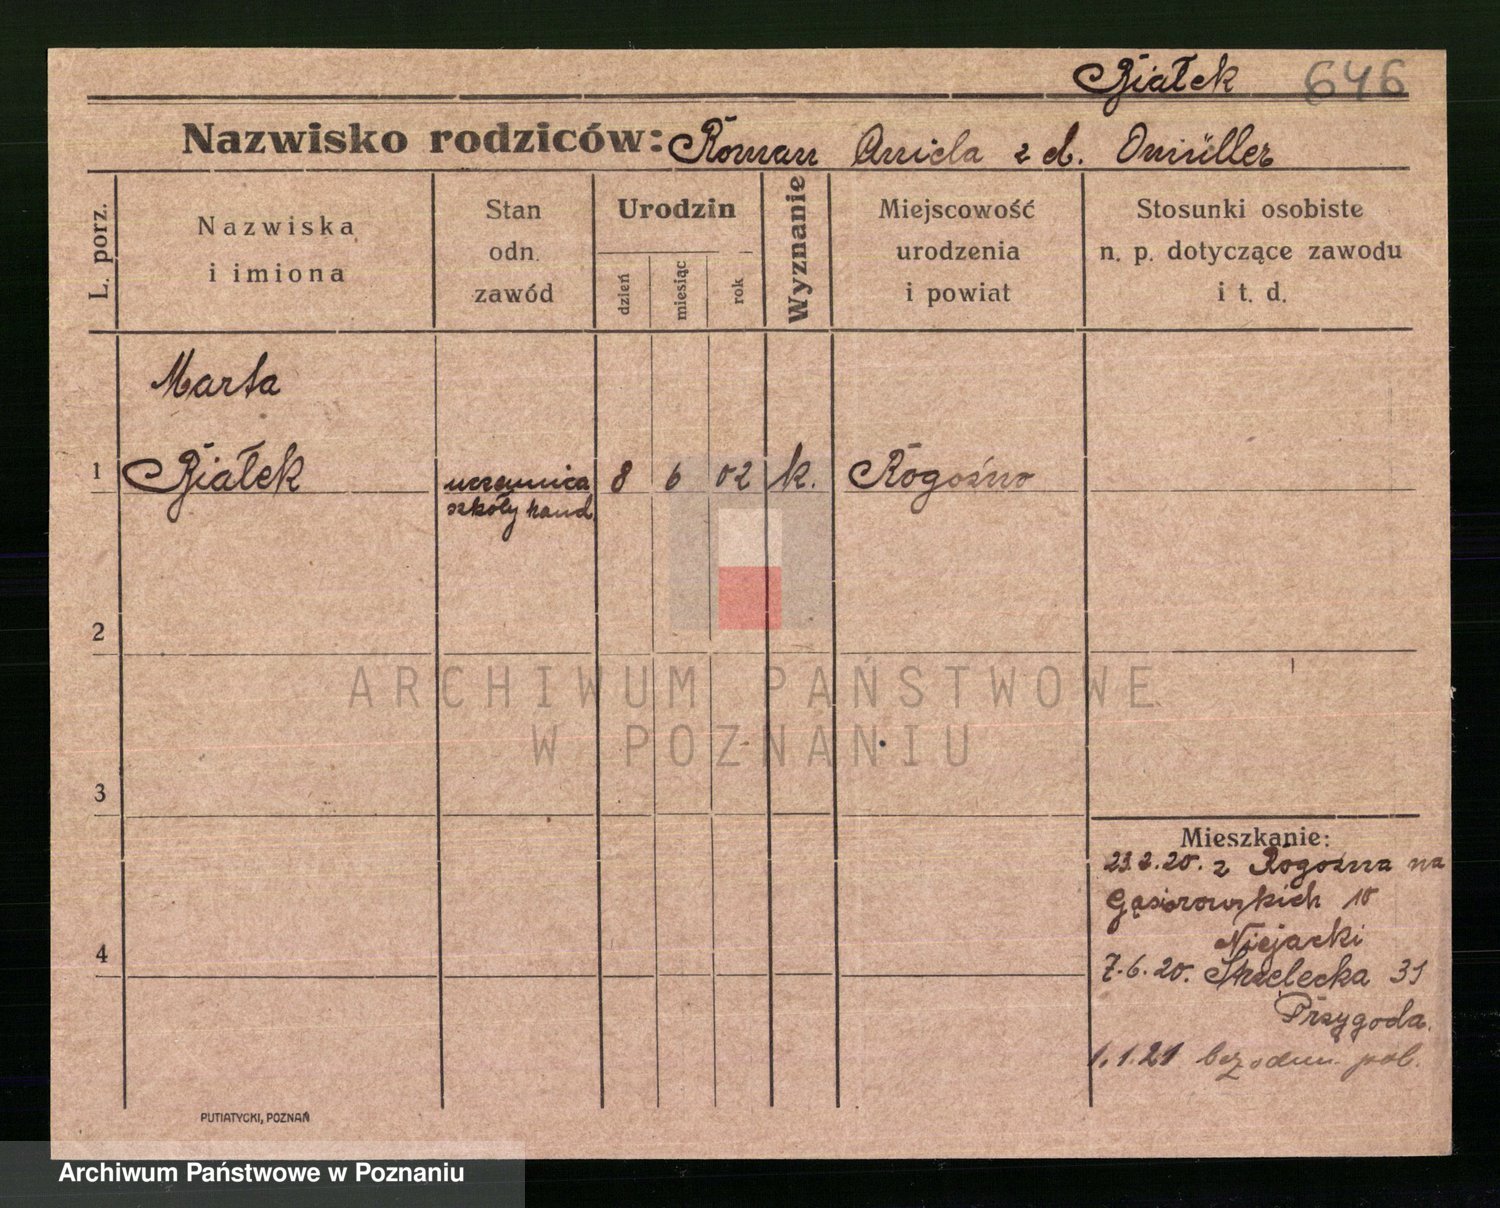 Białek 646
Nazwisko rodziców: Roman Aniela z d. Omüller
L. porz.
Nazwiska
i imiona
Stan
odn.
zawód
Urodzin
dzień
miesiąc
rok
Wyznanie
Miejscowość
urodzenia
i powiat
Stosunki osobiste
n. p. dotyczące zawodu
i t. d.
Marta
1 Białek uczennica 8 6 02 k. Rogoźno
szkoły hand.
2
ARCHIWUM PAŃSTWOWE
W POZNANIU
3
Mieszkanie:
23.2.20. z Rogoźna na
Gąsiorowskich 10
Niejacki
4
7.6.20. Strzelecka 31
Przygoda.
1.1.21 bez odm. pob.
PUTIATYCKI, POZNAŃ
Archiwum Państwowe w Poznaniu